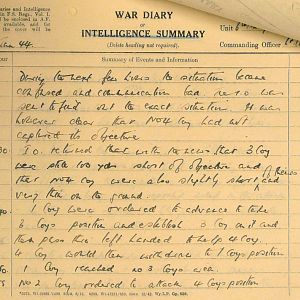 WAR DIARY
or
INTELLIGENCE SUMMARY
(Delete heading not required).
Unit
Commanding Officer
Summary of Events and Information
44.
During the next few hours the situation became
confused and communication bad. no 10 was
sent to find out the exact situation. It was
however clear that No 4 Coy had not
captured the objective.
I.O. returned there with the news that 3 Coy
were still 100 yds short of objective and
that No 4 Coy were also slightly short
very thin on the ground.
1 Coy were ordered to advance to take
3 Coys position and establish 3 Coy on it and
then pass thru left handed to help 4 Coy.
4 Coy would then withdraw to 1 Coys position
1 Coy reached no 3 Coys area.
No 2 Coy ordered to attack 4 Coys position